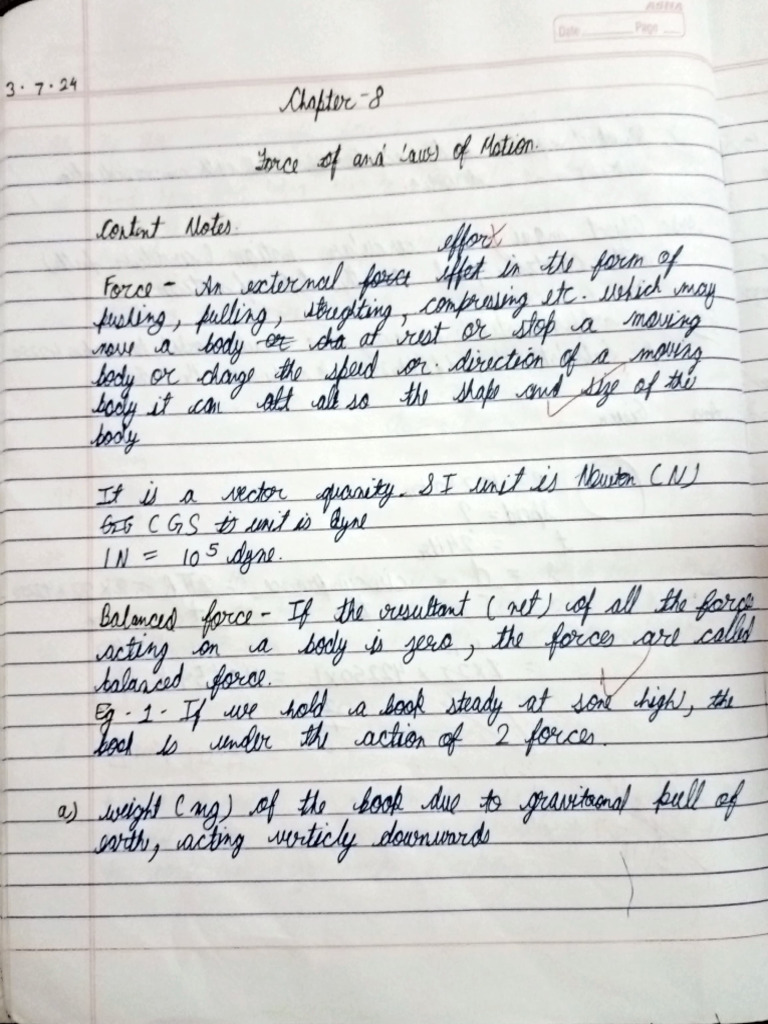 ASHA
Date Page
3.7.24
Chapter-8
Force of and Laws of Motion.
Content Notes.
effort
Force - An external force effet in the form of
pushing, pulling, streghting, compressing etc. which may
move a body or cha at rest or stop a moving
body or change the speed or direction of a moving
body it can alt also the shape and size of the
body
It is a vector quanity. SI unit is Newton (N)
CGS is unit is Dyne
1N = 10⁵ dyne.
Balanced force - If the resultant (net) of all the force
acting on a body is zero, the forces are called
balanced force.
Eg - 1 - If we hold a book steady at some high, the
book is under the action of 2 forces.
a) weight (mg) of the book due to gravitional pull of
earth, acting verticly downwards